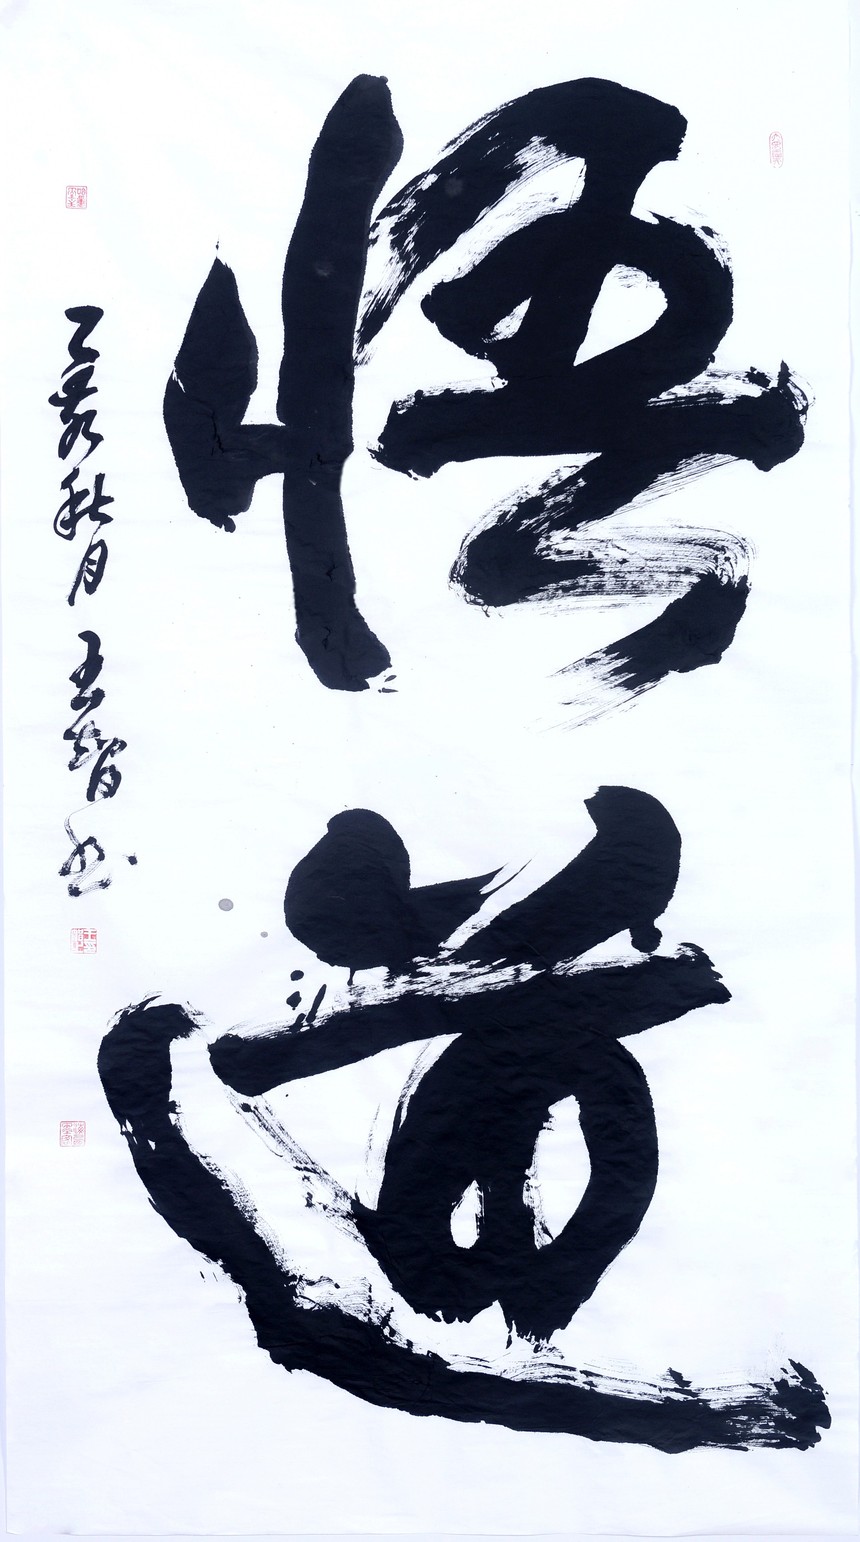 悟道
乙未秋月 王智书